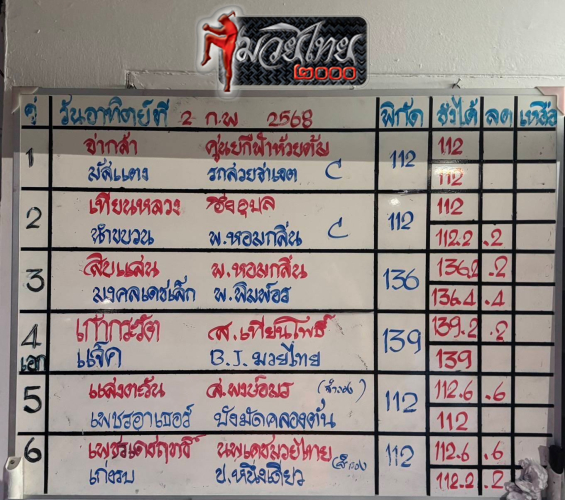 มวยไทย
๒๐๐๐
คู่ วันอาทิตย์ที่ 2 ก.พ 2568 พิกัด ชั่งได้ ลด เหลือ
1 จ่ากล้า ศูนย์กีฬาห้วยต้ม 112 112
มัสแตง รถสวยซ่าเจต C 112
2 เทียนหลวง ฮึ่งอุบล 112 112
นำขบวน พ.หอมกลิ่น C 112.2 .2
3 สิบแสน พ.หอมกลิ่น 136 136.2 .2
มงคลเดชเล็ก พ.พิมพ์อร 136.4 .4
4 เก้ากะรัต ส.เทียนโพธิ์ 139 139.2 .2
เอก แจ๊ค B.J.มวยไทย 139
5 แสงตะวัน ส.พงษ์อมร (สำรอง) 112 112.6 .6
เพชรอาเธอร์ บังมัดคลองตัน 112
6 เพชรเดชฤทธิ์ นพเดชมวยไทย 112 112.6 .6
เก่งรบ ช.หนึ่งเดียว (สำรอง) 112.2 .2